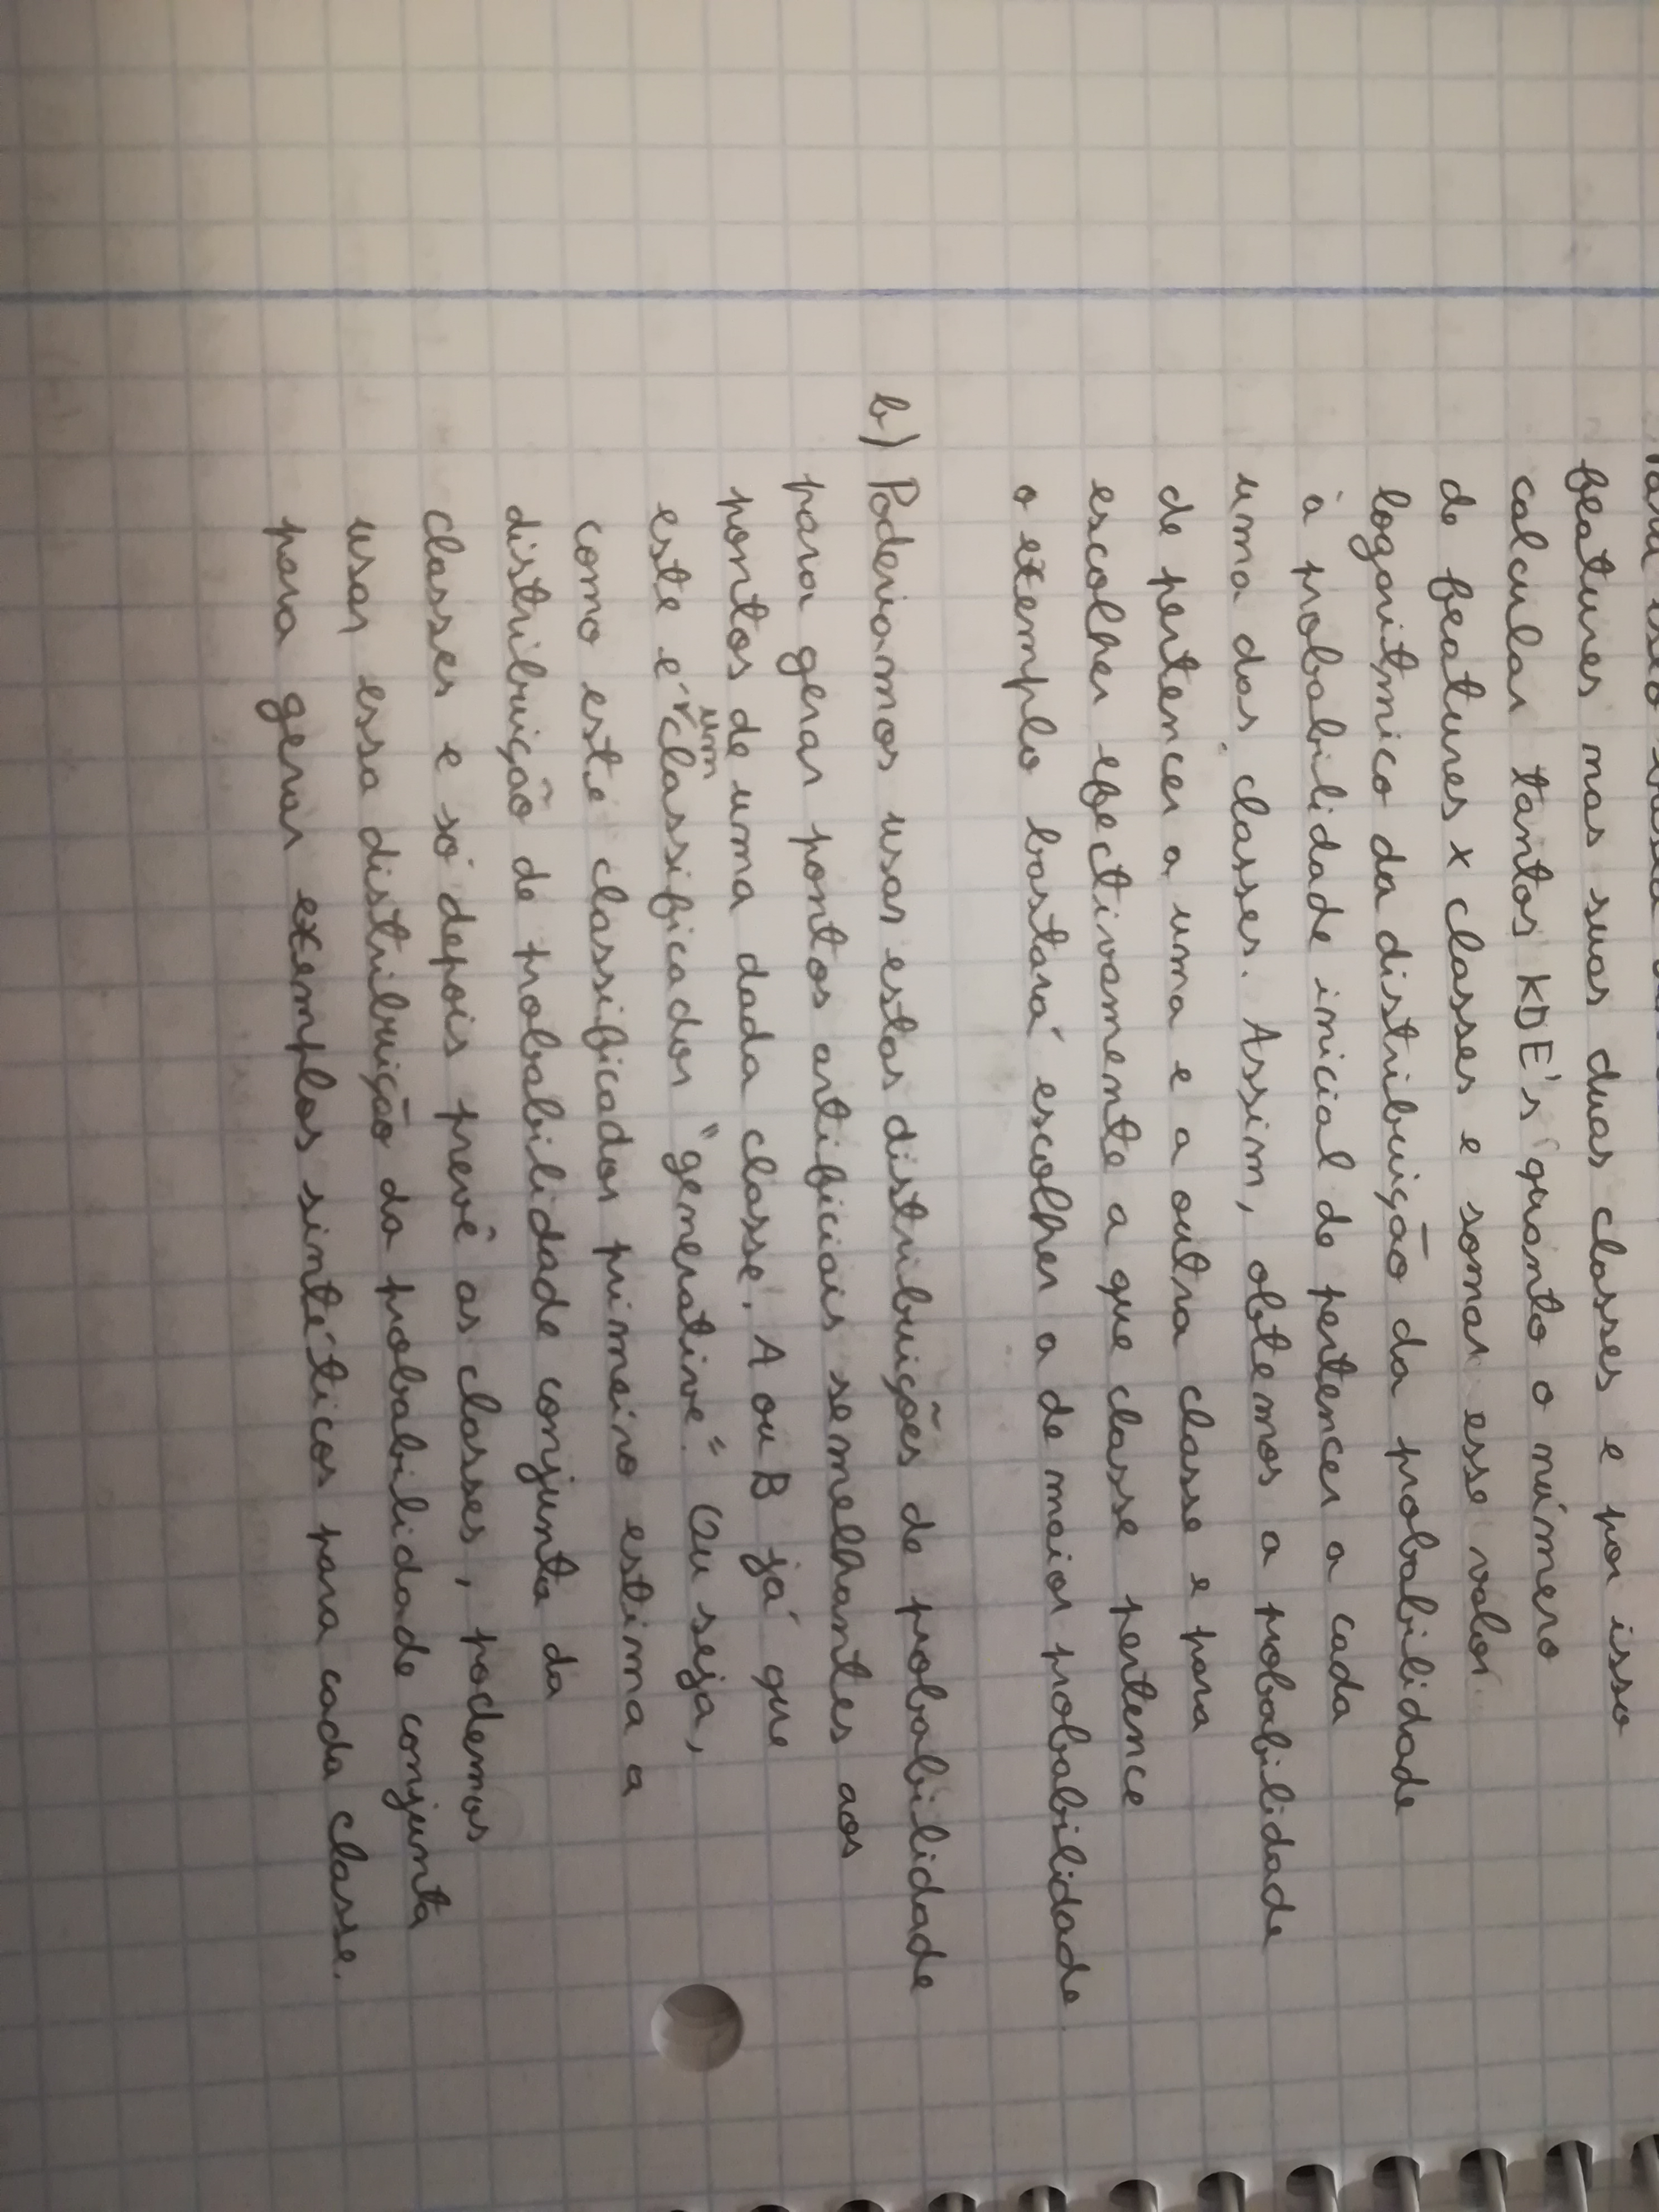 features nas suas duas classes e por isso
calcular tantos KDE's quanto o número
de features x classes e somar esse valor
logaritmico da distribuição da probabilidade
à probabilidade inicial de pertencer a cada
uma das classes. Assim, obtemos a probabilidade
de pertencer a uma e a outra classe e para
escolher efectivamente a que classe pertence
o exemplo bastará escolher a de maior probabilidade.
b) Poderiamos usar estas distribuições de probabilidade
para gerar pontos artificiais semelhantes aos
pontos de uma dada classe, A ou B já que
este é um classificador "generative". Ou seja,
como este classificador primeiro estima a
distribuição de probabilidade conjunta da
classes e só depois prevê as classes, podemos
usar essa distribuição da probabilidade conjunta
para gerar exemplos sintéticos para cada classe.